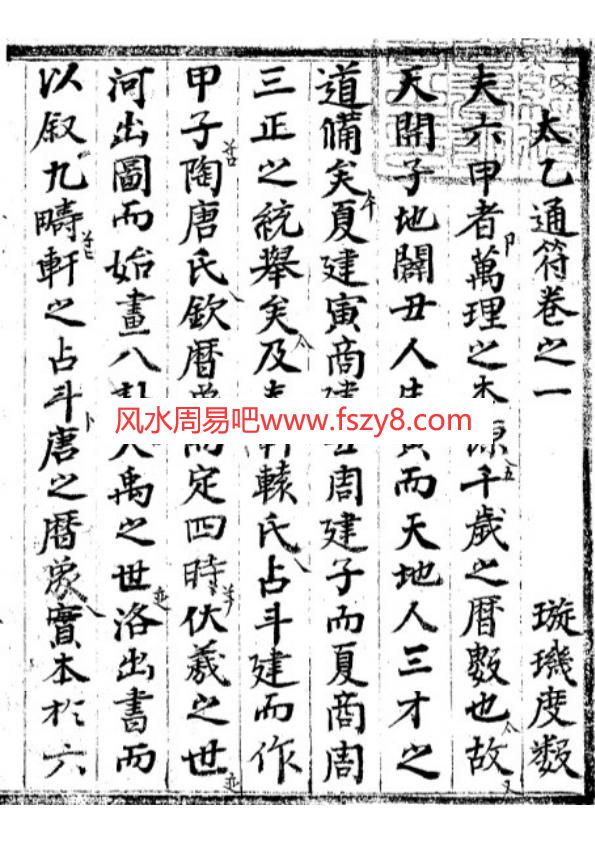 太乙通符卷之一 璇璣度數
夫六甲者萬理之本源千歲之曆數也故
天開子地闢丑人生寅而天地人三才之
道備矣夏建寅商建丑周建子而夏商周
三正之統舉矣及軒轅氏占斗建而作
甲子陶唐氏欽曆象而定四時伏羲之世
河出圖而始畫八卦大禹之世洛出書而
以叙九疇軒之占斗唐之曆象實本於六
风水周易吧www.fszy8.com